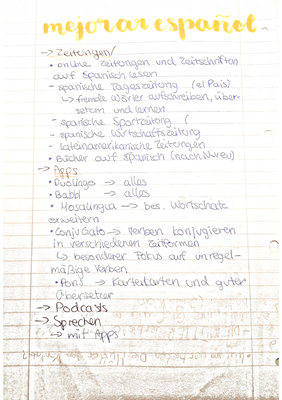 mejorar español
→ Zeitungen/
• online Zeitungen und Zeitschriften
auf Spanisch lesen
- spanische Tageszeitung (el País)
↳ fremde Wörter aufschreiben, über-
setzen und lernen
- spanische Sportzeitung (
- spanische Wirtschaftszeitung
- lateinamerikanische Zeitungen
• Bücher auf spanisch (nach Niveu)
→ Apps
• Duolingo → alles
• Babbl → alles
• Mosalingua → bes. Wortschatz
erweitern
• ConjuGato → Verben konjugieren
in verschiedenen Zeitformen
↳ besonderer Fokus auf unregel-
mäßige Verben
• Pons → Karteikarten und guter
Übersetzer
→ Podcasts
→ Sprechen
→ mit Apps